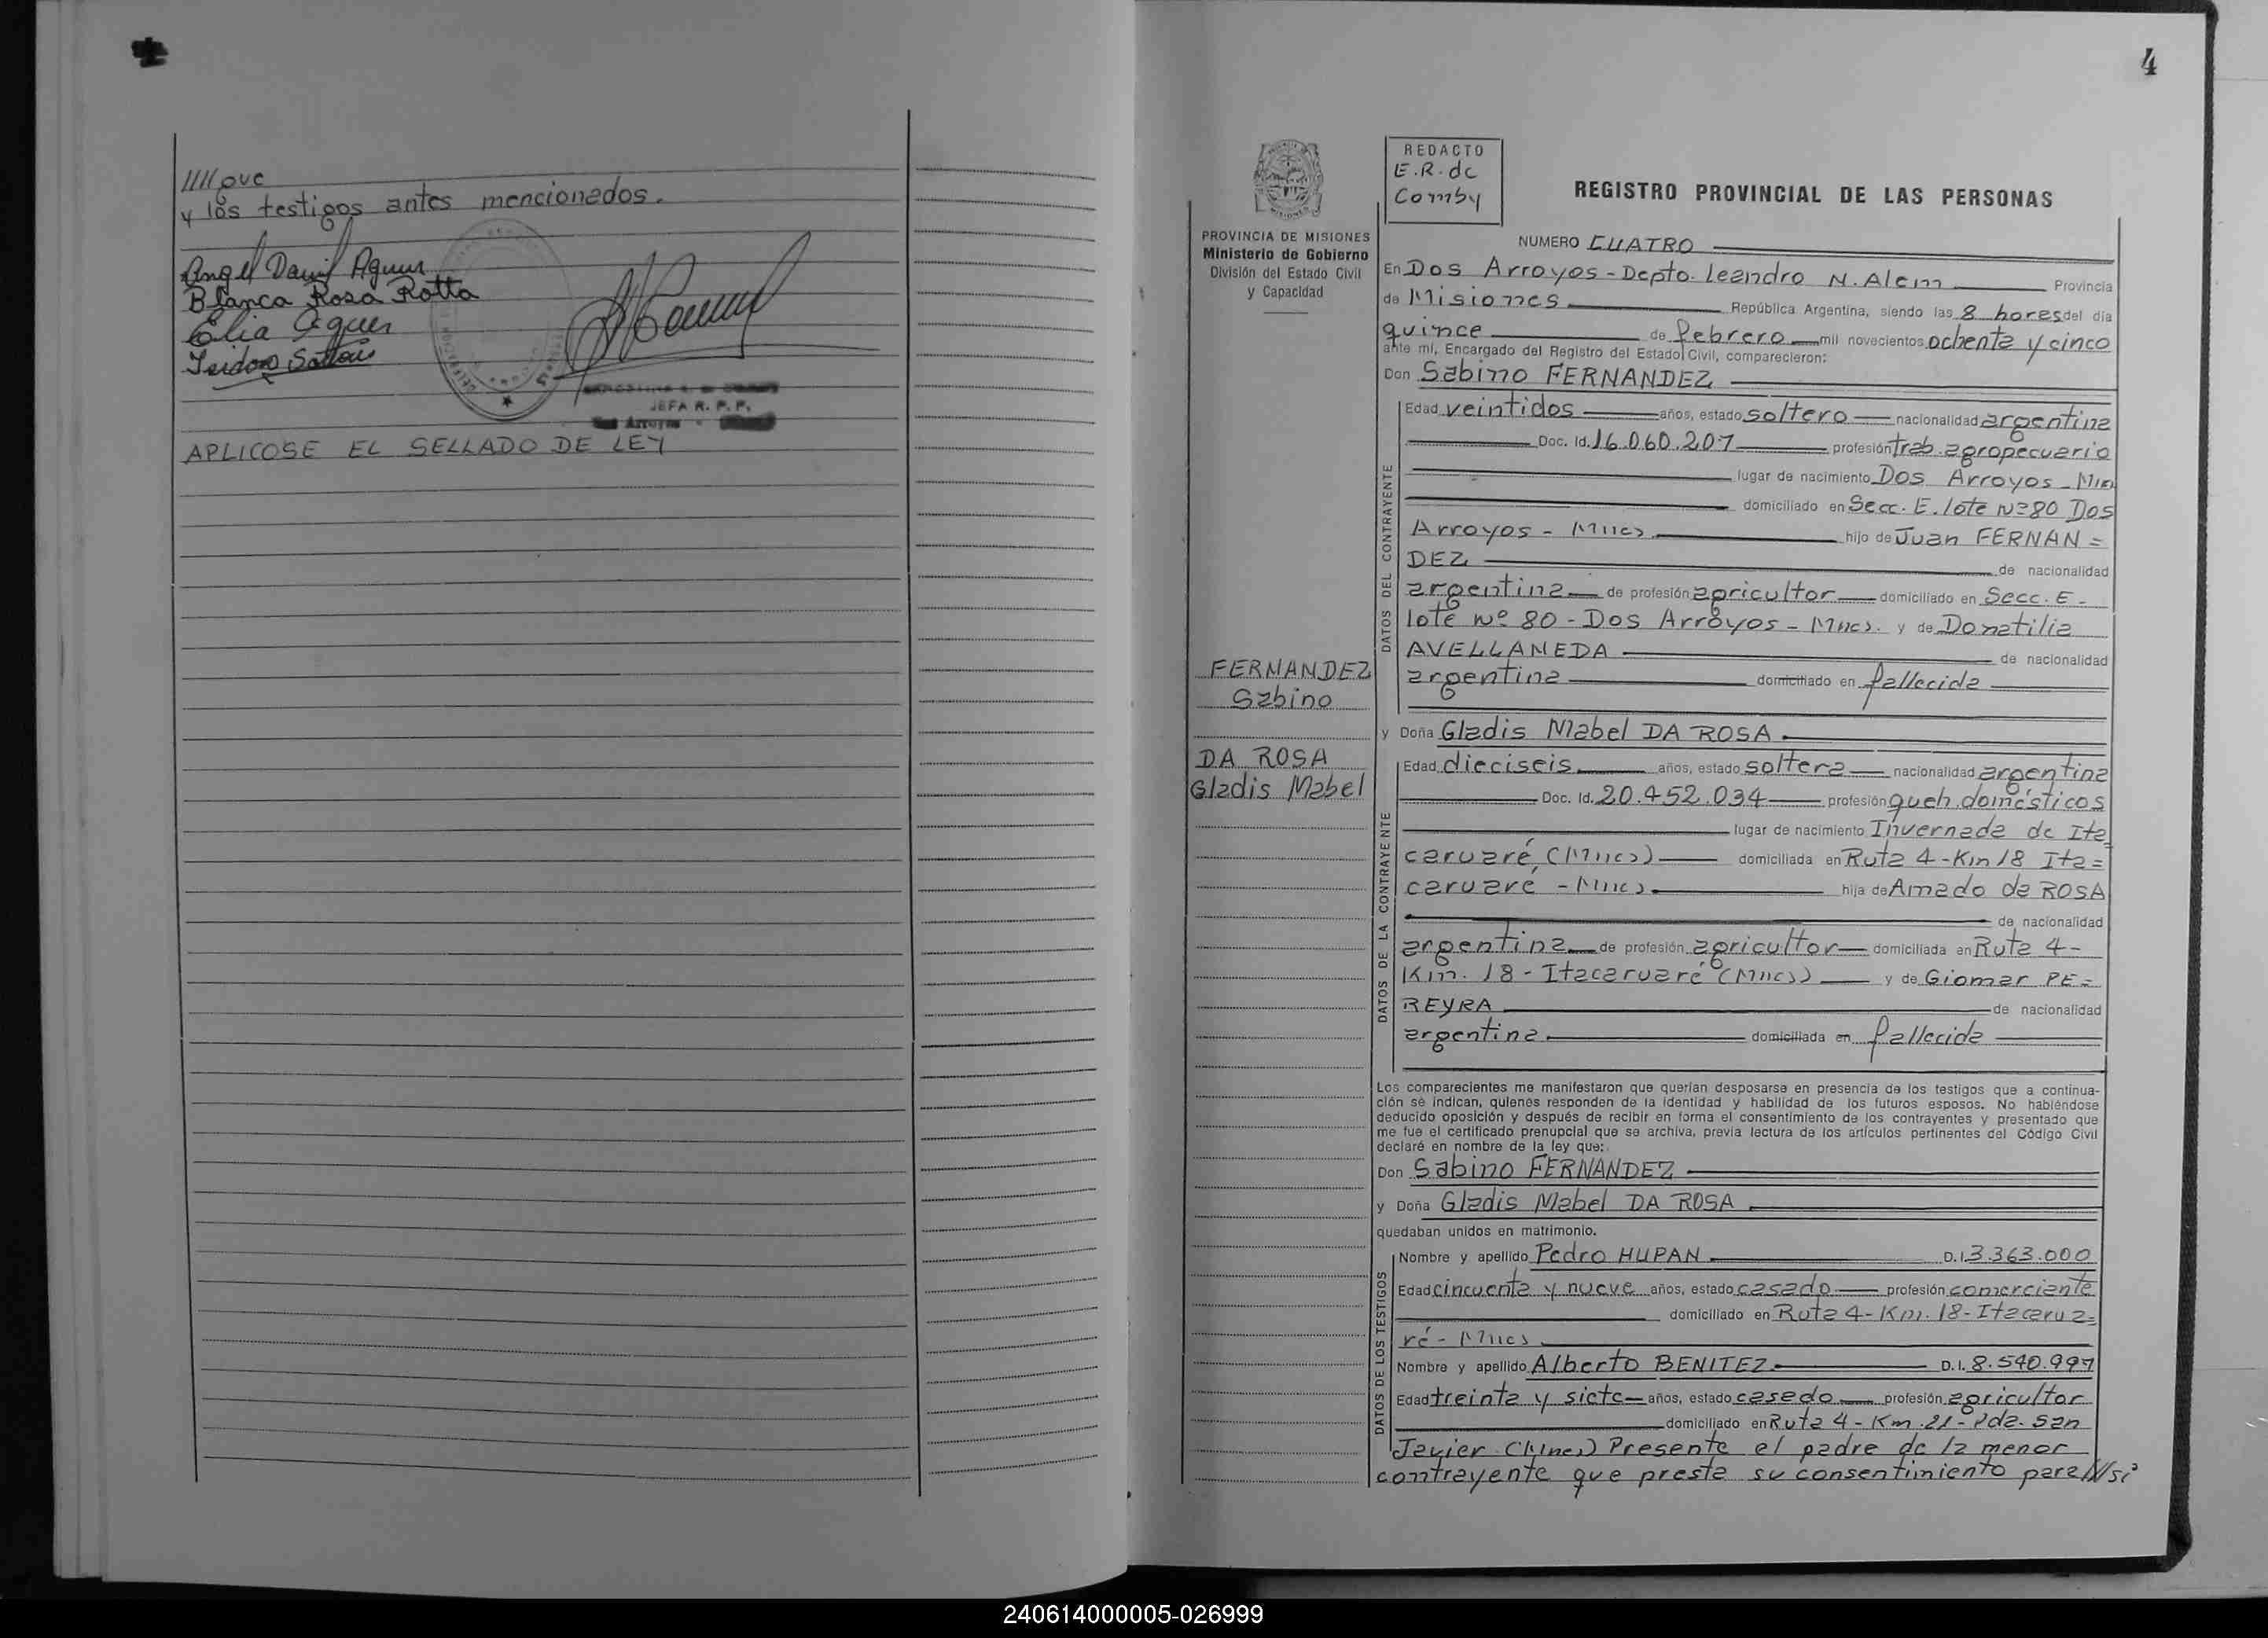 ////que
y los testigos antes mencionados.
Angel Daniel Aguer
Blanca Rosa Rotta
Elia Aguer
Isidoro
JEFA R. P. P.
Dos Arroyos -
APLICOSE EL SELLADO DE LEY
4
PROVINCIA DE MISIONES
Ministerio de Gobierno
División del Estado Civil
y Capacidad
REDACTO
E.R. de
Comby
REGISTRO PROVINCIAL DE LAS PERSONAS
NUMERO CUATRO
En Dos Arroyos - Depto. Leandro N. Alem Provincia
de Misiones República Argentina, siendo las 8 horas del día
quince de febrero mil novecientos ochenta y cinco
ante mí, Encargado del Registro del Estado Civil, comparecieron:
Don Sabino FERNANDEZ
Edad veintidos años, estado soltero nacionalidad argentina
Doc. Id. 16.060.207 profesión trab. agropecuario
lugar de nacimiento Dos Arroyos - Mnes
domiciliado en Secc. E. lote Nº 80 Dos
Arroyos - Mnes hijo de Juan FERNAN=
DEZ de nacionalidad
argentina de profesión agricultor domiciliado en Secc. E -
lote Nº 80 - Dos Arroyos - Mnes. y de Donatilia
AVELLANEDA de nacionalidad
argentina domiciliado en fallecida
FERNANDEZ
Sabino
DA ROSA
Gladis Mabel
y Doña Gladis Mabel DA ROSA
Edad dieciseis años, estado soltera nacionalidad argentina
Doc. Id. 20.452.034 profesión queh. domésticos
lugar de nacimiento Invernada de Ita
caruaré, (Mnes) domiciliada en Ruta 4 - Km 18 Ita=
caruaré - Mnes hija de Amado da ROSA
de nacionalidad
argentina de profesión agricultor domiciliada en Ruta 4 -
Km. 18 - Itacaruaré (Mnes) y de Giomar PE=
REYRA de nacionalidad
argentina domiciliada en fallecida
Los comparecientes me manifestaron que querían desposarse en presencia de los testigos que a continua-
ción se indican, quienes responden de la identidad y habilidad de los futuros esposos. No habiéndose
deducido oposición y después de recibir en forma el consentimiento de los contrayentes y presentado que
me fue el certificado prenupcial que se archiva, previa lectura de los artículos pertinentes del Código Civil
declaré en nombre de la ley que:
Don Sabino FERNANDEZ
y Doña Gladis Mabel DA ROSA
quedaban unidos en matrimonio.
Nombre y apellido Pedro HUPAN D.I. 3.363.000
Edad cincuenta y nueve años, estado casado profesión comerciante
domiciliado en Ruta 4 - Km. 18 - Itacarua=
ré - Mnes
Nombre y apellido Alberto BENITEZ D.I. 8.540.997
Edad treinta y siete años, estado casado profesión agricultor
domiciliado en Ruta 4 - Km. 21 - Pda. San
Javier (Mnes) Presente el padre de la menor
contrayente que presta su consentimiento para////si
DATOS DEL CONTRAYENTE
DATOS DE LA CONTRAYENTE
DATOS DE LOS TESTIGOS
240614000005-026999